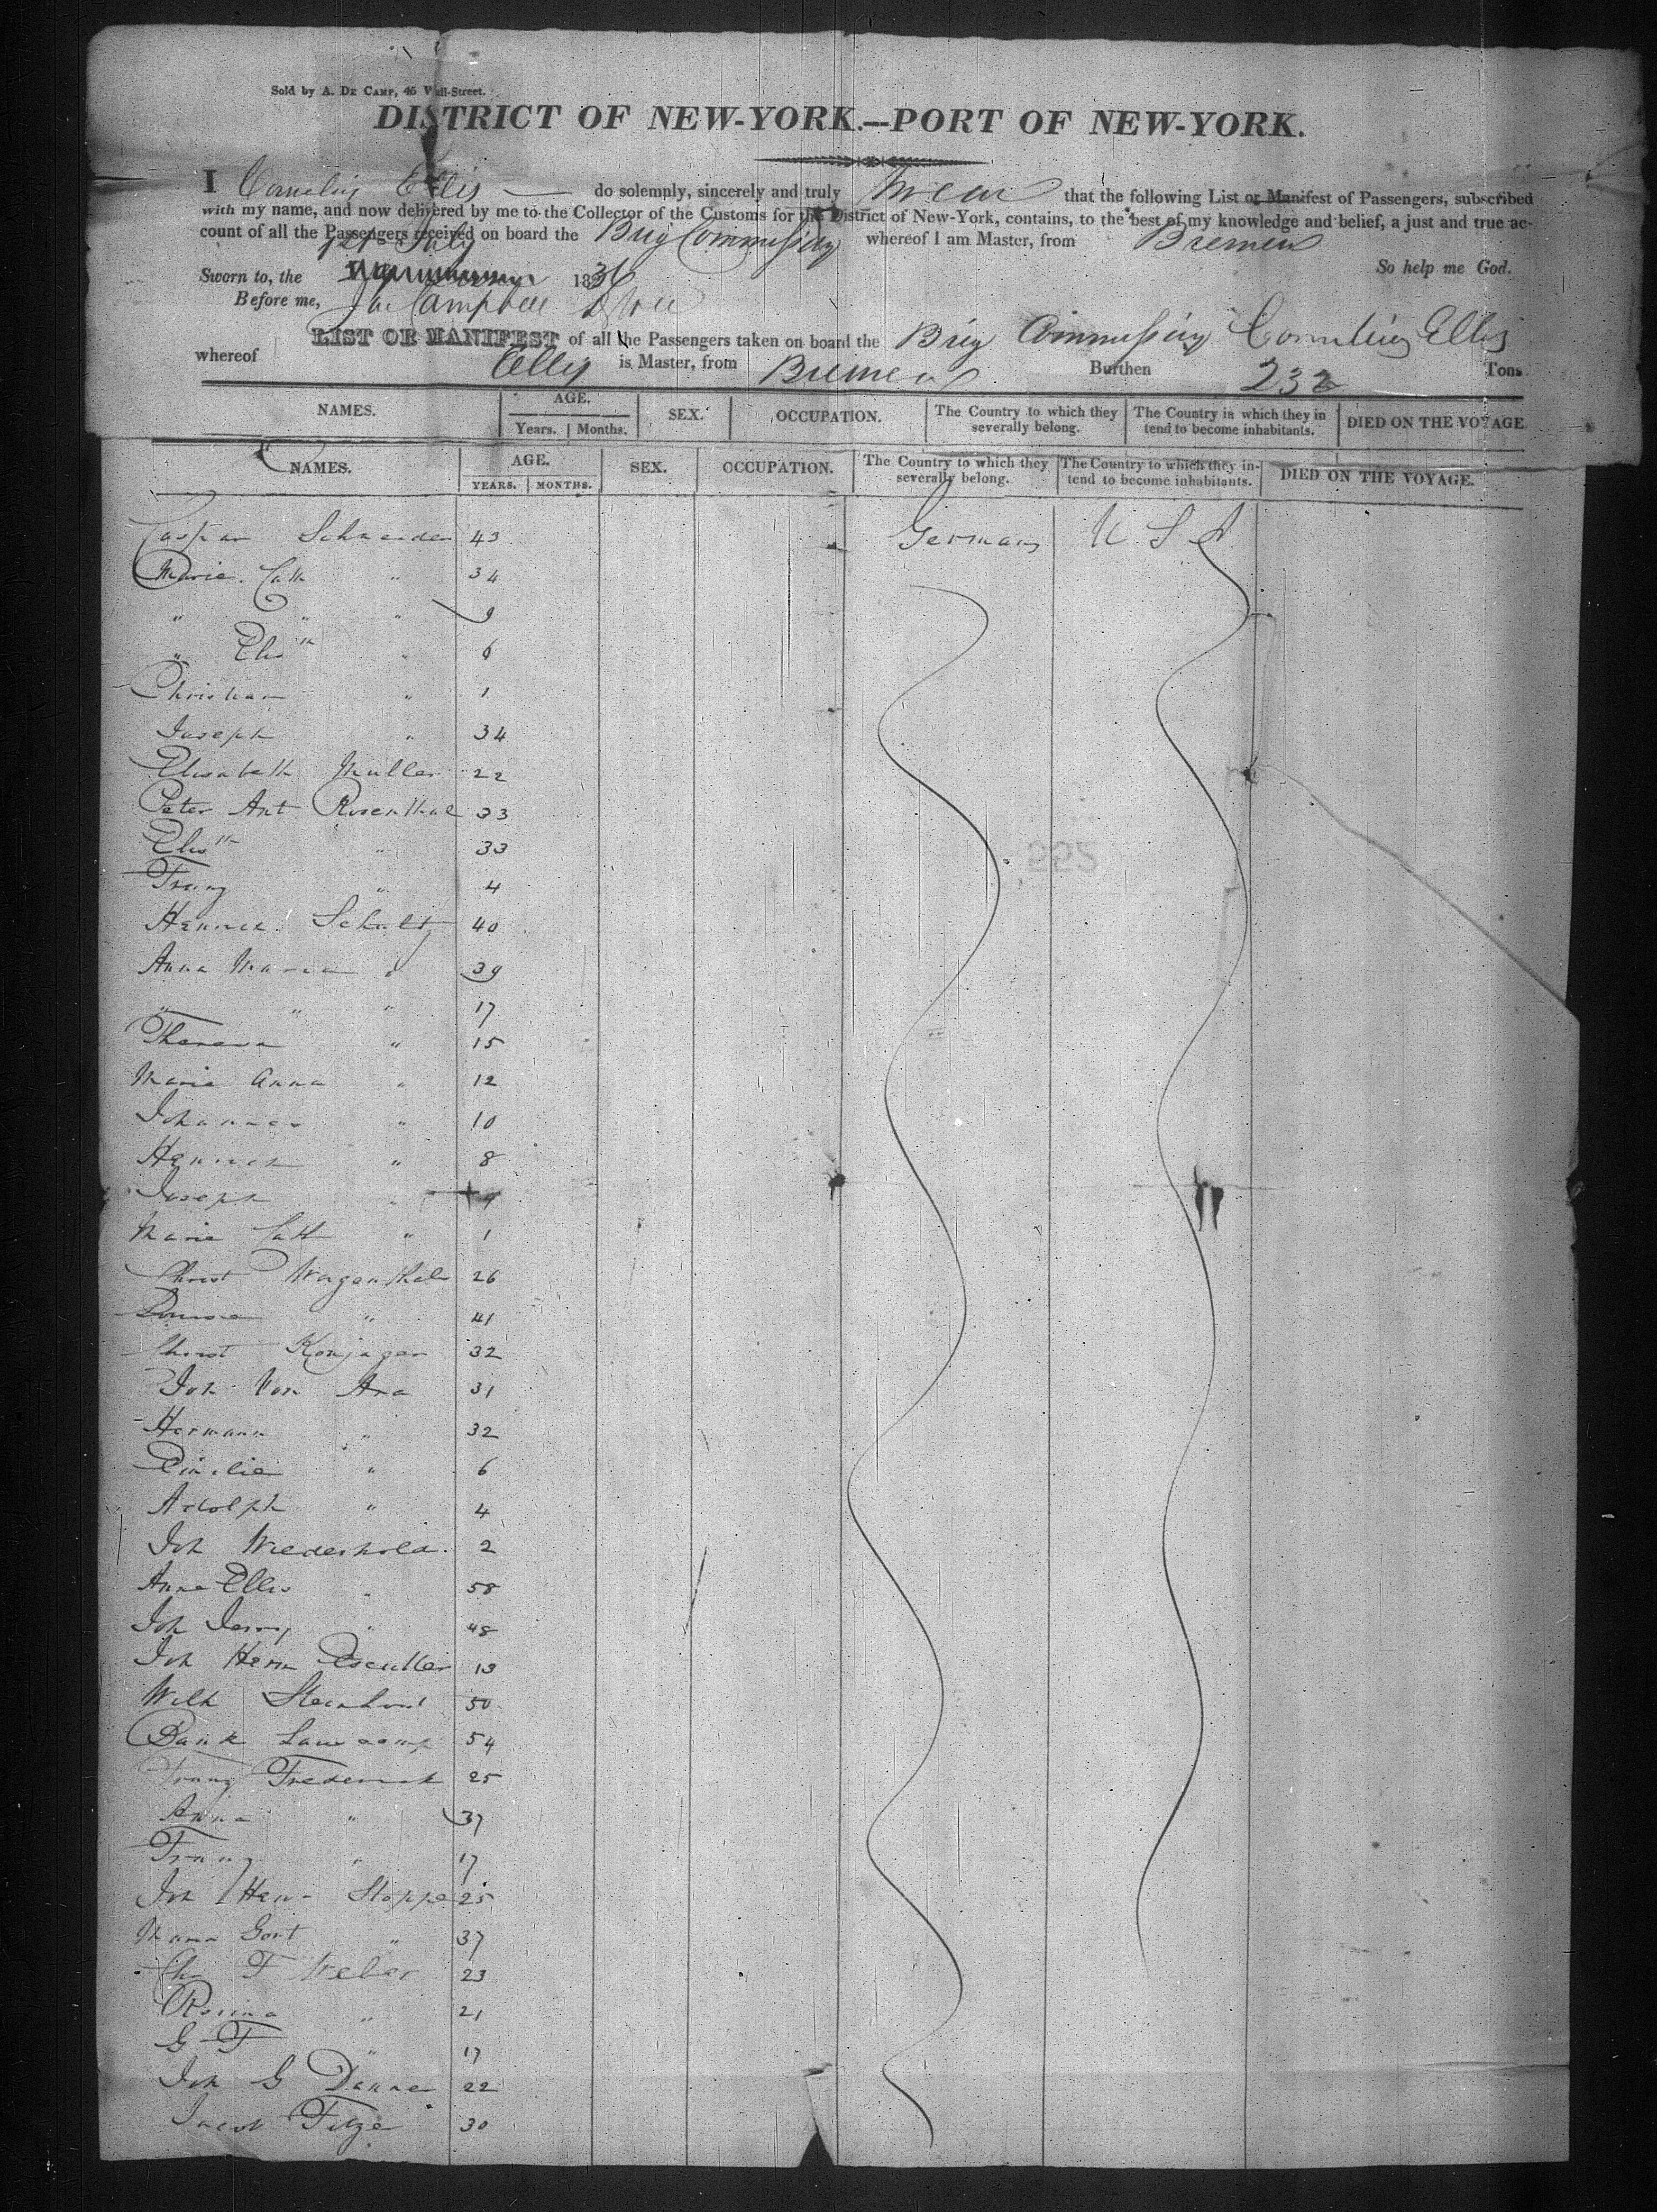 Sold by A. DE CAMP, 45 Wall-Street.
DISTRICT OF NEW-YORK.—PORT OF NEW-YORK.
I Cornelius Ellis do solemnly, sincerely and truly swear that the following List or Manifest of Passengers, subscribed
with my name, and now delivered by me to the Collector of the Customs for the District of New-York, contains, to the best of my knowledge and belief, a just and true ac-
count of all the Passengers received on board the Brig whereof I am Master, from Bremen
So help me God.
July
Sworn to, the 1836
Before me, Campbell
LIST OR MANIFEST of all the Passengers taken on board the Brig Cornelius Ellis
whereof Ellis is Master, from Bremen Burthen 232 Tons.
NAMES. AGE. Years. Months. SEX. OCCUPATION. The Country to which they severally belong. The Country in which they intend to become inhabitants. DIED ON THE VOYAGE
NAMES. AGE. YEARS. MONTHS. SEX. OCCUPATION. The Country to which they severally belong. The Country to which they in-tend to become inhabitants. DIED ON THE VOYAGE.
Caspar Schneider 43 Germany U S A
Marie Cath " 34
" " " 9
" Elisth " 6
Christian " 1
Joseph " 34
Elisabeth Muller 22
Peter Ant Rosenthal 33
Elisth " 33
Franz " 4
Schultz 40
Anna Maria " 39
" " " 17
Theresa " 15
Maria Anna " 12
Johannes " 10
Heinrich " 8
Joseph "
Marie Cath " 1
Christ Wagenthal 26
Louise " 41
Christ Konjager 32
Joh Von Ara 31
Hermann " 32
Emilie " 6
Adolph " 4
Joh Wiederhold 2
Anna Ellis " 58
Joh " 48
Joh Herm 13
Wilh 50
54
Franz Frederick 25
Anna " 37
Franz " 17
Joh Stoppe 25
" 37
Chr F Weber 23
Rosina " 21
G F " 17
Joh G Danne 22
Jacob 30